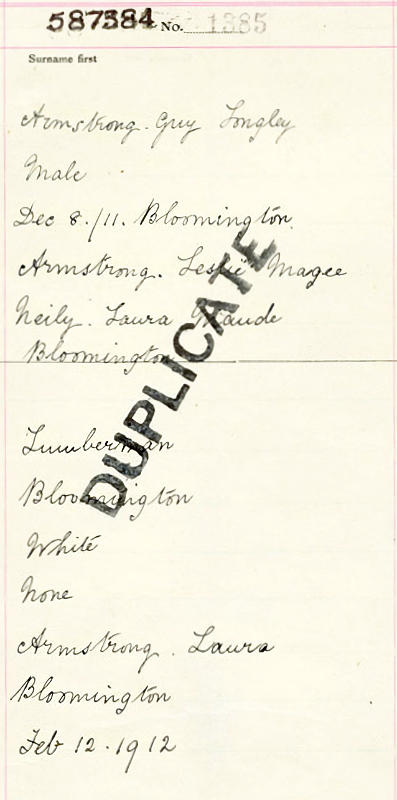 587384 No. 1385
Surname first
Armstrong. Guy Longley
Male
Dec 8./11. Bloomington.
Armstrong. Leslie Magee
Neily. Laura Maude
Bloomington
DUPLICATE
Lumberman
Bloomington
White
None
Armstrong. Laura
Bloomington
Feb 12. 1912